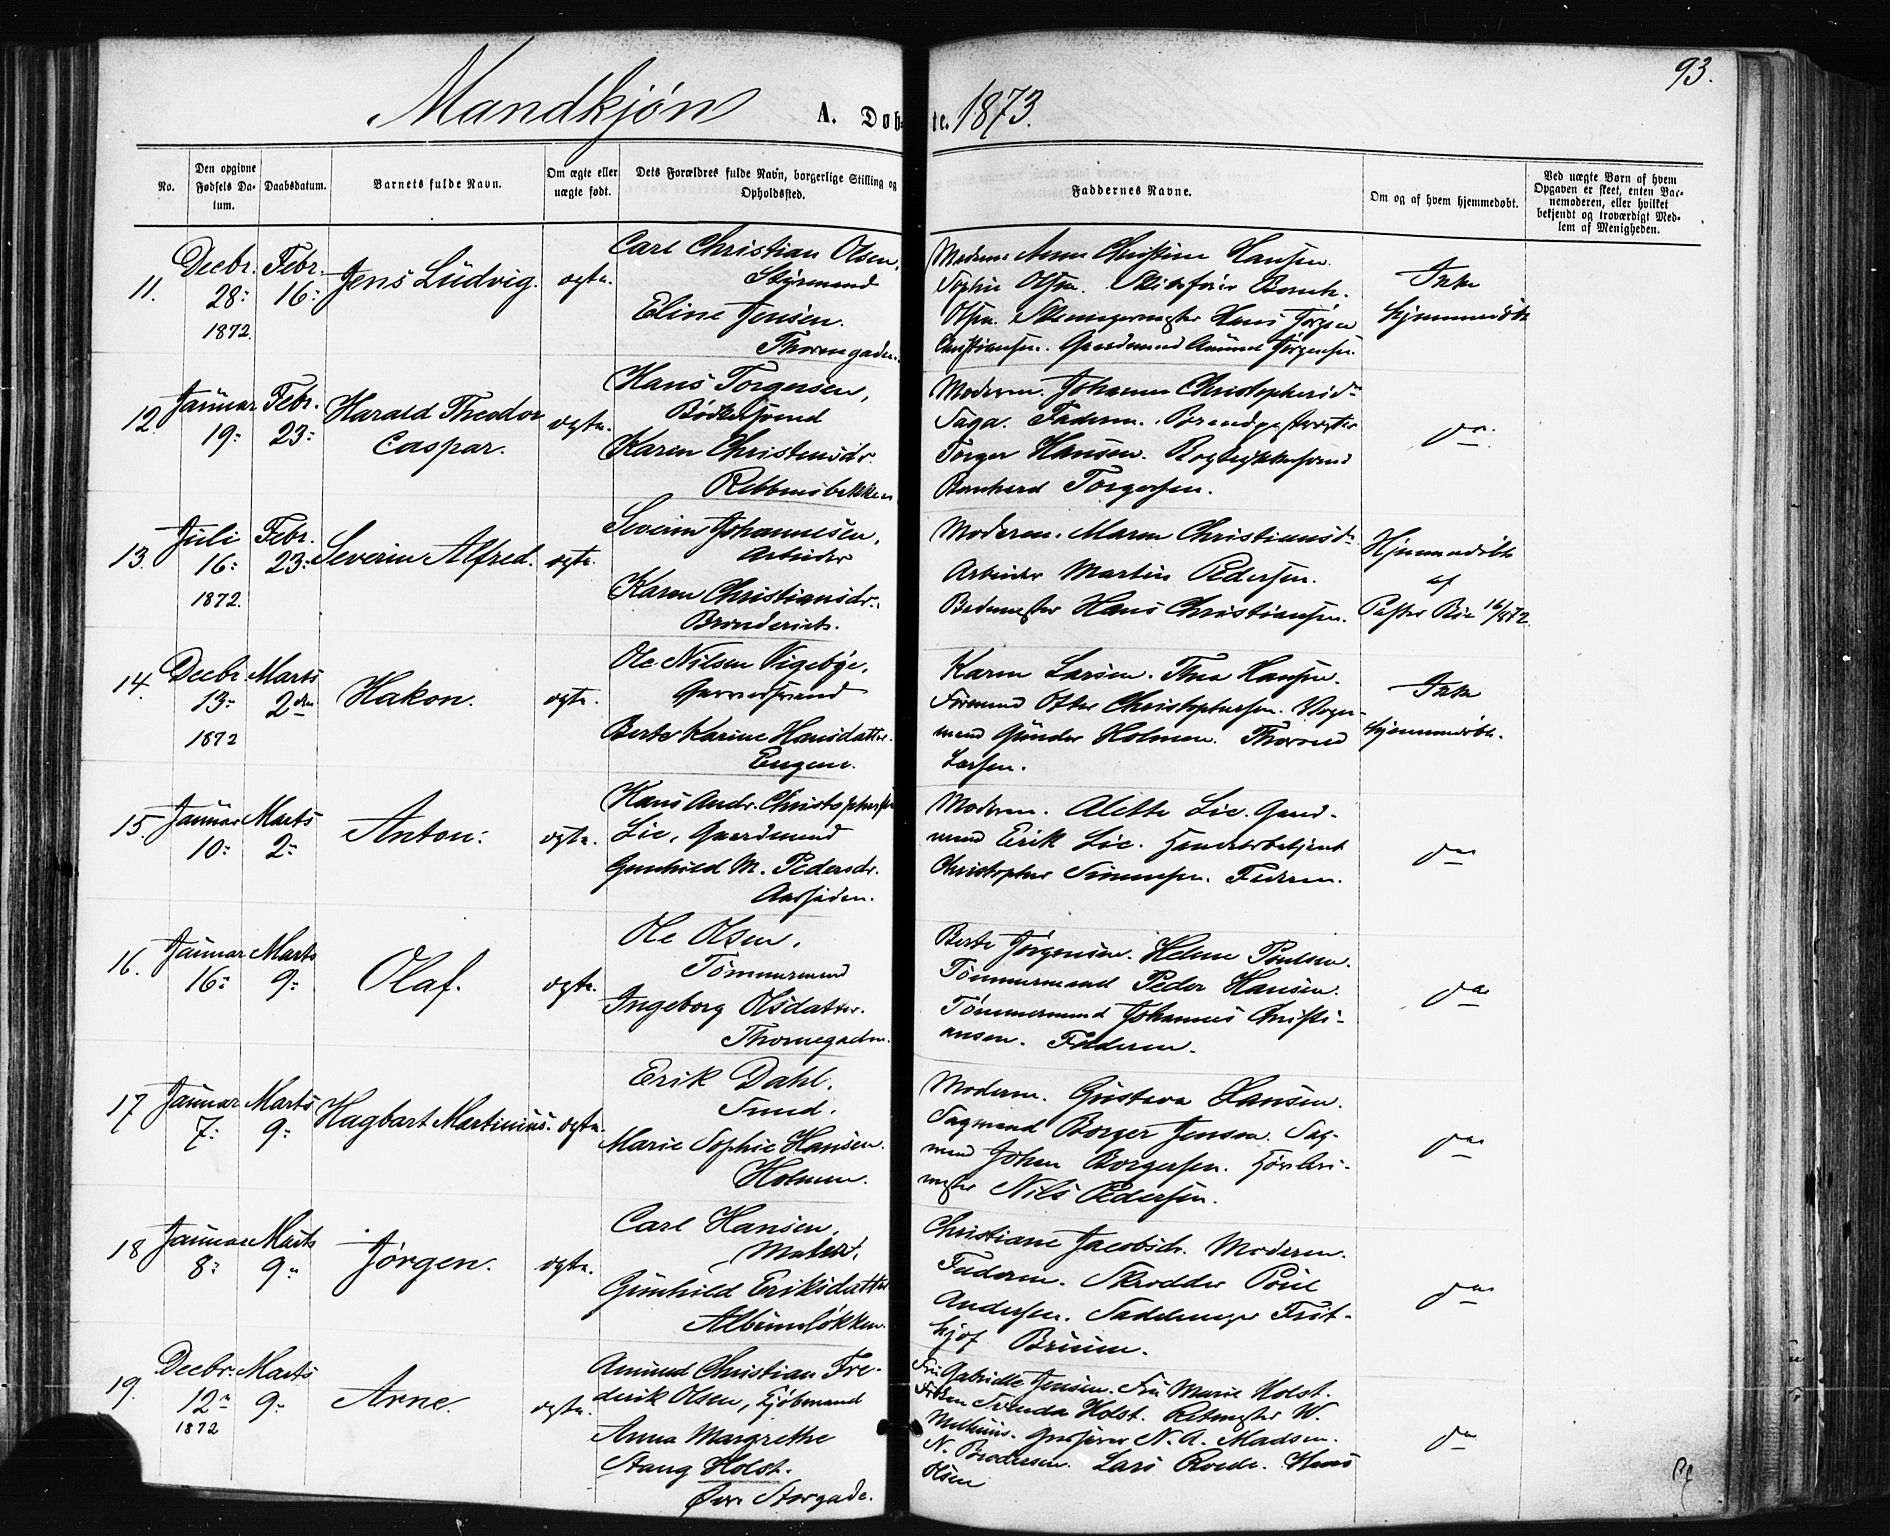 93.
Mandkjøn A. Døbte. 1873.
No.
Den opgivne Fødsels Datum.
Daabsdatum.
Barnets fulde Navn.
Om ægte eller uægte født.
Dets Forældres fulde Navn, borgerlige Stilling og Opholdssted.
Faddernes Navne.
Om og af hvem hjemmedøbt.
Ved uægte Børn af hvem Opgaven er skeet, enten Barnemoderen, eller hvilket bekjendt og troværdigt Medlem af Menigheden.
11. Decbr. 28: 1872. Febr. 16: Jens Ludvig. ægte.
Carl Christian Olsen,
Styrmand
Eline Jensen.
Thornegaden.
Moderen Anne Christine Hansen.
Sophie Olsen.
Olsen. Hans Jørgen
Christiansen. Gaardmand Amund Jørgensen.
Ikke
hjemmedøbt
12. Januar 19: Febr. 23: Harald Theodor
Caspar. ægte.
Hans Torgersen,
Bødkersvend
Karen Christensdr.
Rebbensbekken
Moderen. Johanne Christophersd.
Saga. Faderen.
Torger Hansen.
Bernhard Torgersen.
do
13. Juli 16: 1872. Febr. 23: Severin Alfred. ægte.
Severin Johannesen,
Arbeider
Karen Christiansdr.
Moderen. Maren Christiansd.
Arbeider Martin Pedersen.
Hans Christiansen.
Hjemmedøbt
af
Pastor 16/8 72.
14. Decbr. 13: 1872 Marts 2den Hakon. ægte.
Ole Nilsen Vigebye,
Garversvend
Berte Karine Hansdatter.
Engene.
Karen Larsen. Thea Hansen.
Formand Otter Christophersen. Vogn-
mand Gunder Holmen. Thorvald
Larsen.
Ikke
hjemmedøbt.
15. Januar 10: Marts 2: Anton: ægte.
Hans Andr. Christophersen
Lie, Gaardmand
Gunhild M. Pedersdr.
Aassiden.
Moderen. Alette Lie. Gaard-
mand Erik Lie. Handelsbetjent
Christopher Simensen. Faderen.
do
16. Januar 16: Marts 9: Olaf. ægte.
Ole Olsen,
Tømmermand
Ingeborg Olsdatter.
Thornegaden.
Berte Jørgensen. Helene Poulsen.
Tømmermand Peder Hansen.
Tømmermand Johannes Christi-
ansen. Faderen.
do
17 Januar 7: Marts 9: Hagbart Martinius. ægte.
Erik Dahl.
Smed.
Marie Sophie Hansen.
Holmen.
Moderen. Gustava Hansen.
Sagmand Borger Jensen. Sag-
mand Johan Borgersen.
Nils Pedersen.
do
18 Januar 8: Marts 9: Jørgen. ægte.
Carl Hansen,
Maler.
Gunhild Eriksdatter
Albumsløkken.
Christiane Jacobsdr. Moderen.
Faderen. Skrædder Poul
Andersen. Sadelmager Frit-
hjof Bruun.
do
19. Decbr. 12: 1872 Marts 9: Arne. ægte.
Amund Christian Fre-
derik Olsen, Kjøbmand
Anna Margrethe
Stang Holst.
Øvre Storgade.
Fru Gabrielle Jensen. Fru Marie Holst.
Frøken Holst. Ritmester W.
Grosserer N. A. Madsen.
N. Brodersen. Lars Roede. Hans
Olsen
do